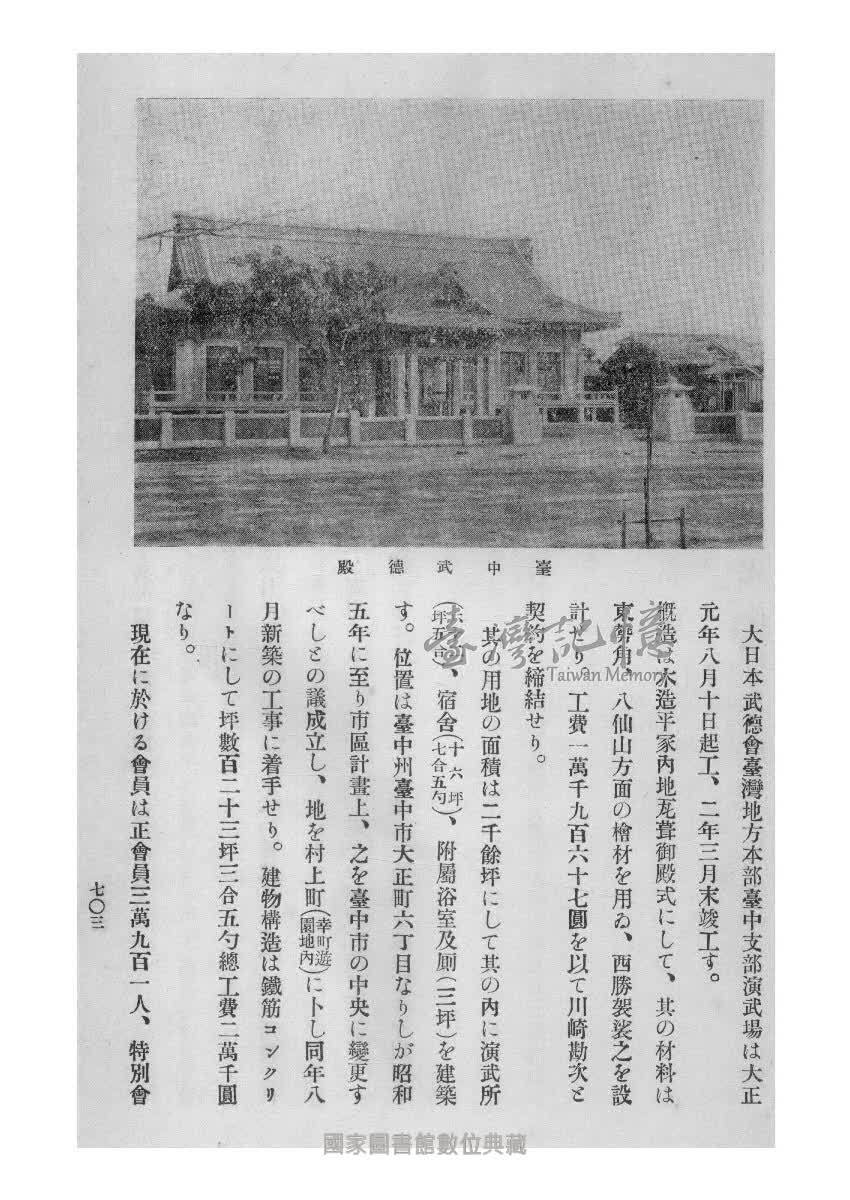 臺中武德殿
大日本武德會臺灣地方本部臺中支部演武場は大正
元年八月十日起工、二年三月末竣工す。
概造は木造平家內地瓦葺御殿式にして、其の材料は
東勢角、八仙山方面の檜材を用ゐ、西勝袈裟之を設
計せり。工費一萬千九百六十七圓を以て川崎勘次と
契約を締結せり。
其の用地の面積は二千餘坪にして其の內に演武所
(坪五合)、宿舍(十六坪七合五勺)、附屬浴室及厠(三坪)を建築
す。位置は臺中州臺中市大正町六丁目なりしが昭和
五年に至り市區計畫上、之を臺中市の中央に變更す
べしとの議成立し、地を村上町(幸町遊園地內)に卜し同年八
月新築の工事に着手せり。建物構造は鐵筋コンクリ
ートにして坪數百二十三坪三合五勺總工費二萬千圓
なり。
現在に於ける會員は正會員三萬九百一人、特別會
七〇三
臺灣記憶
Taiwan Memory
國家圖書館數位典藏